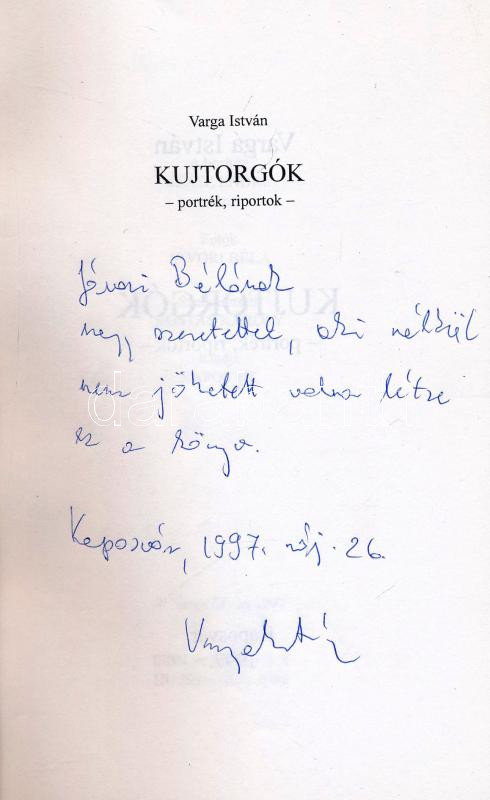 Varga István
KUJTORGÓK
– portrék, riportok –
Bélának
nagy szeretettel, aki nélkül
nem jöhetett volna létre
ez a könyv.
Kaposvár, 1997. máj. 26.
Varga István